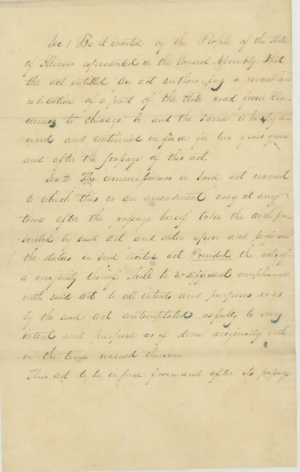 Sec 1 Be it enacted by the People of the State
of Illinois represented in the General Assembly, That
the act entitled "An act authorizing a review and
relocation of a part of the State road from Vin-
cennes to Chicago" be and the same is hereby
and continued in force for two years from
and after the passage of this act.
Sec 2 The commissioners in said act named
to which this is an amendment may at any
time after the passage hereof take the oath pre-
scribed by said act and enter upon and perform
the duties in said recited act Provided the acts of
a majority thereof shall be a compliance
with said act to all intents and purposes as is
by the said act contemplated as fully to every
intent and purpose as if done originally with-
in the time named therein
This act to be in force from and after its passage